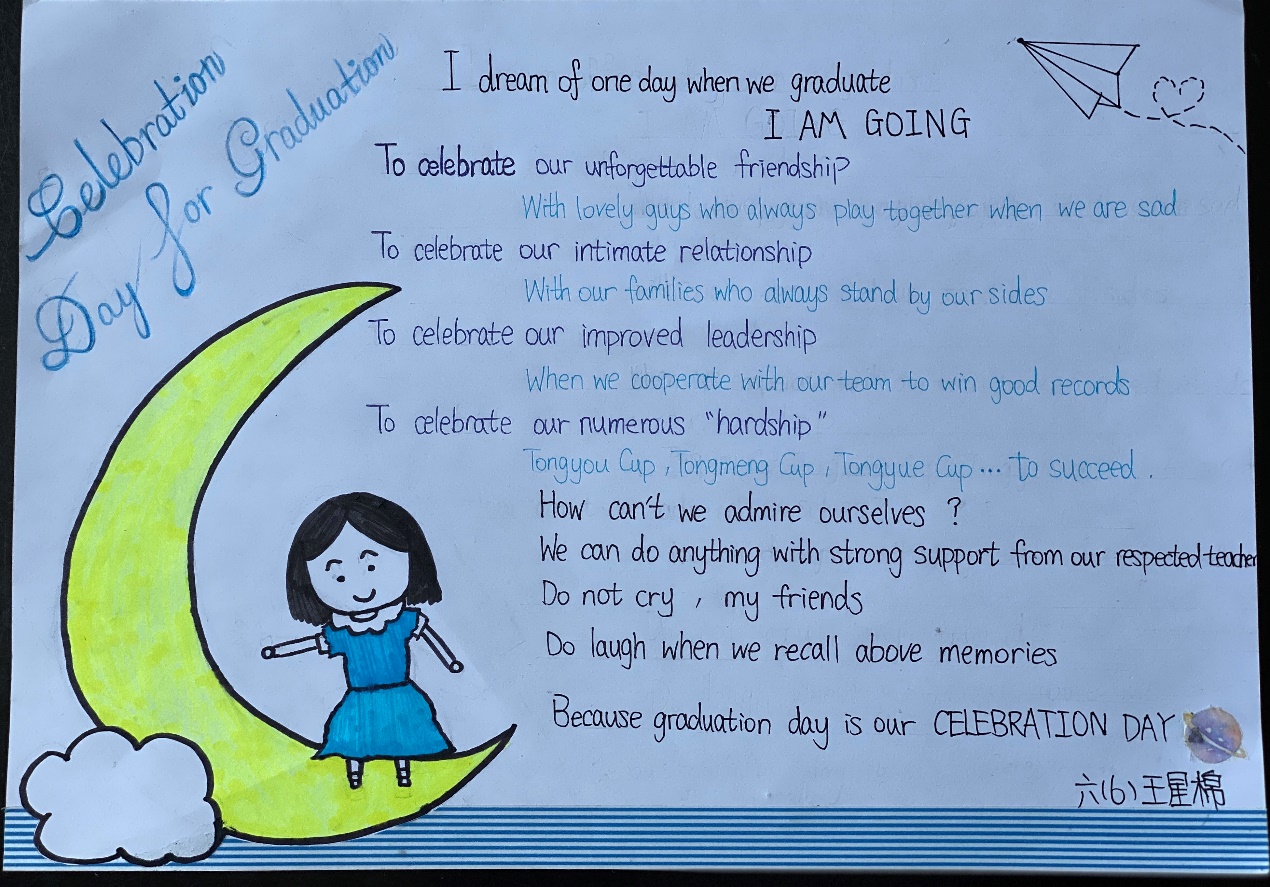 Celebration
Day for Graduation
I dream of one day when we graduate
I AM GOING
To celebrate our unforgettable friendship
With lovely guys who always play together when we are sad
To celebrate our intimate relationship
With our families who always stand by our sides
To celebrate our improved leadership
When we cooperate with our team to win good records
To celebrate our numerous "hardship"
Tongyou Cup , Tongmeng Cup , Tongyue Cup ... to succeed .
How can't we admire ourselves ?
We can do anything with strong support from our respected teacher
Do not cry , my friends
Do laugh when we recall above memories
Because graduation day is our CELEBRATION DAY
六(6)王星棉